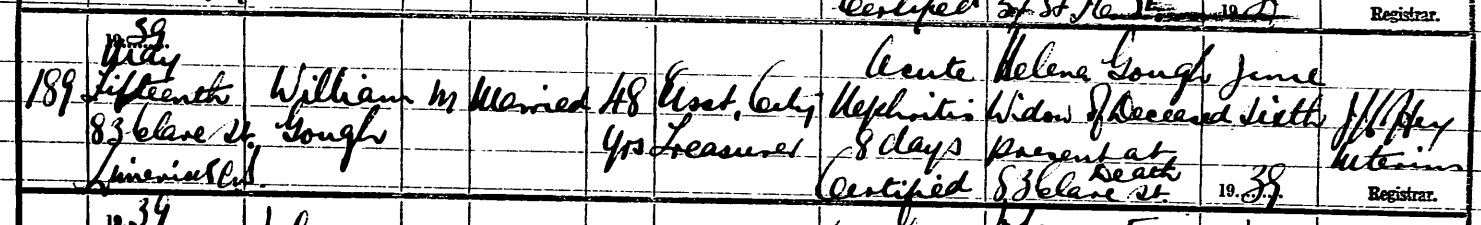 Certified
19
Registrar.
189
1939
May
Fifteenth
83 Clare St.
Limerick
William
Gough
M
Married
48
yrs
Asst. City
Treasurer
Acute
Nephritis
8 days
Certified
Helena Gough
Widow of Deceased
present at
Death
83 Clare St.
June
Sixth
19.39.
Interim
Registrar.
19 39